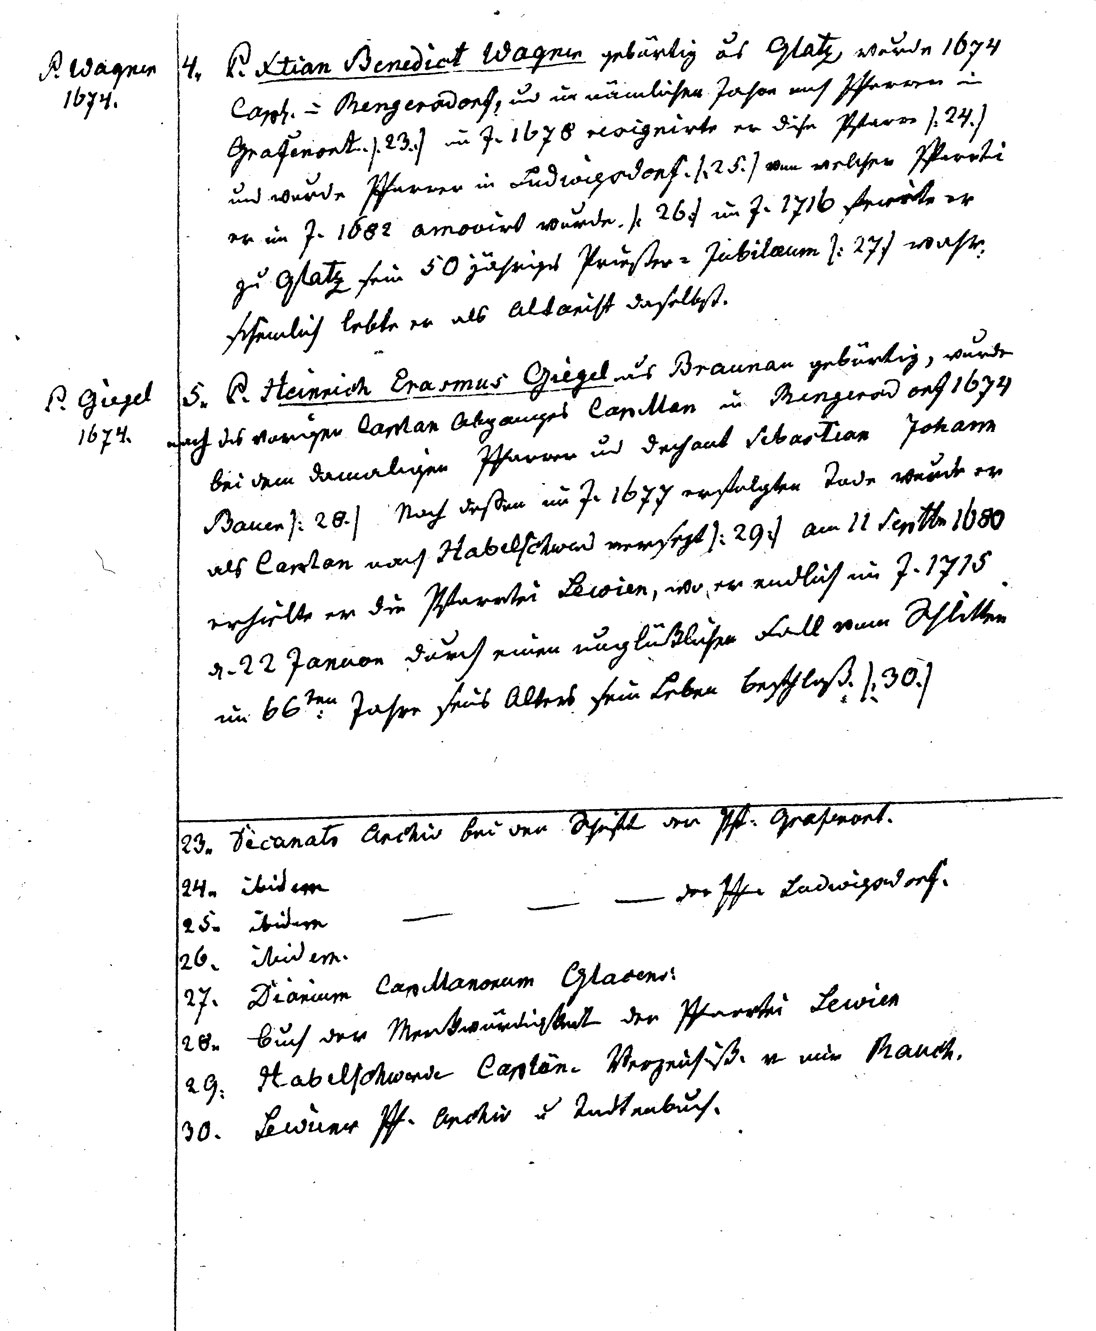 P. Wagner
1674.
4. P. Xtian Benedict Wagner gebürtig aus Glatz, wurde 1674
Capl. in Rengersdorf, und im nämlichen Jahre noch Pfarrer in
Grafenort. /:23:/ im J. 1678 resignirte er diese Pfarre /:24:/
und wurde Pfarrer in Ludwigsdorf. /:25:/ von welcher Pfarrtei
er im J. 1682 amovirt wurde. /:26:/ im J. 1716 feierte er
zu Glatz sein 50 jähriges Priester-Jubilaeum /:27:/ wahr-
scheinlich lebte er als Altarist daselbst.
P. Giegel
1674.
5. P. Heinrich Erasmus Giegel aus Braunau gebürtig, wurde
nach des vorigen Caplan Abganges Capellan in Rengersdorf 1674
bei dem damaligen Pfarrer und Dechant Sebastian Johann
Bauer /:28:/ Nach dessen im J. 1677 erfolgten Tode wurde er
als Caplan nach Habelschwerd versetzt /:29:/ am 11 Septbr 1680
erhielte er die Pfarrtei Lewien, wo er endlich im J. 1715
d. 22 Januar durch einen unglücklichen Fall vom Schlitten
im 66ten Jahre seines Alters sein Leben beschloß. /:30:/
23. Decanats Archiv bei der Schrift der Pf. Grafenort.
24. ibidem
25. ibidem — — — der Pf. Ludwigsdorf.
26. ibidem.
27. Diarium Capellanorum Glacens:
28. Buch der Merkwürdigkeit der Pfarrtei Lewien
29. Habelschwerd Caplän. Verzeichniß. v Rauch.
30. Lewiner Pf. Archiv u Todtenbuch.